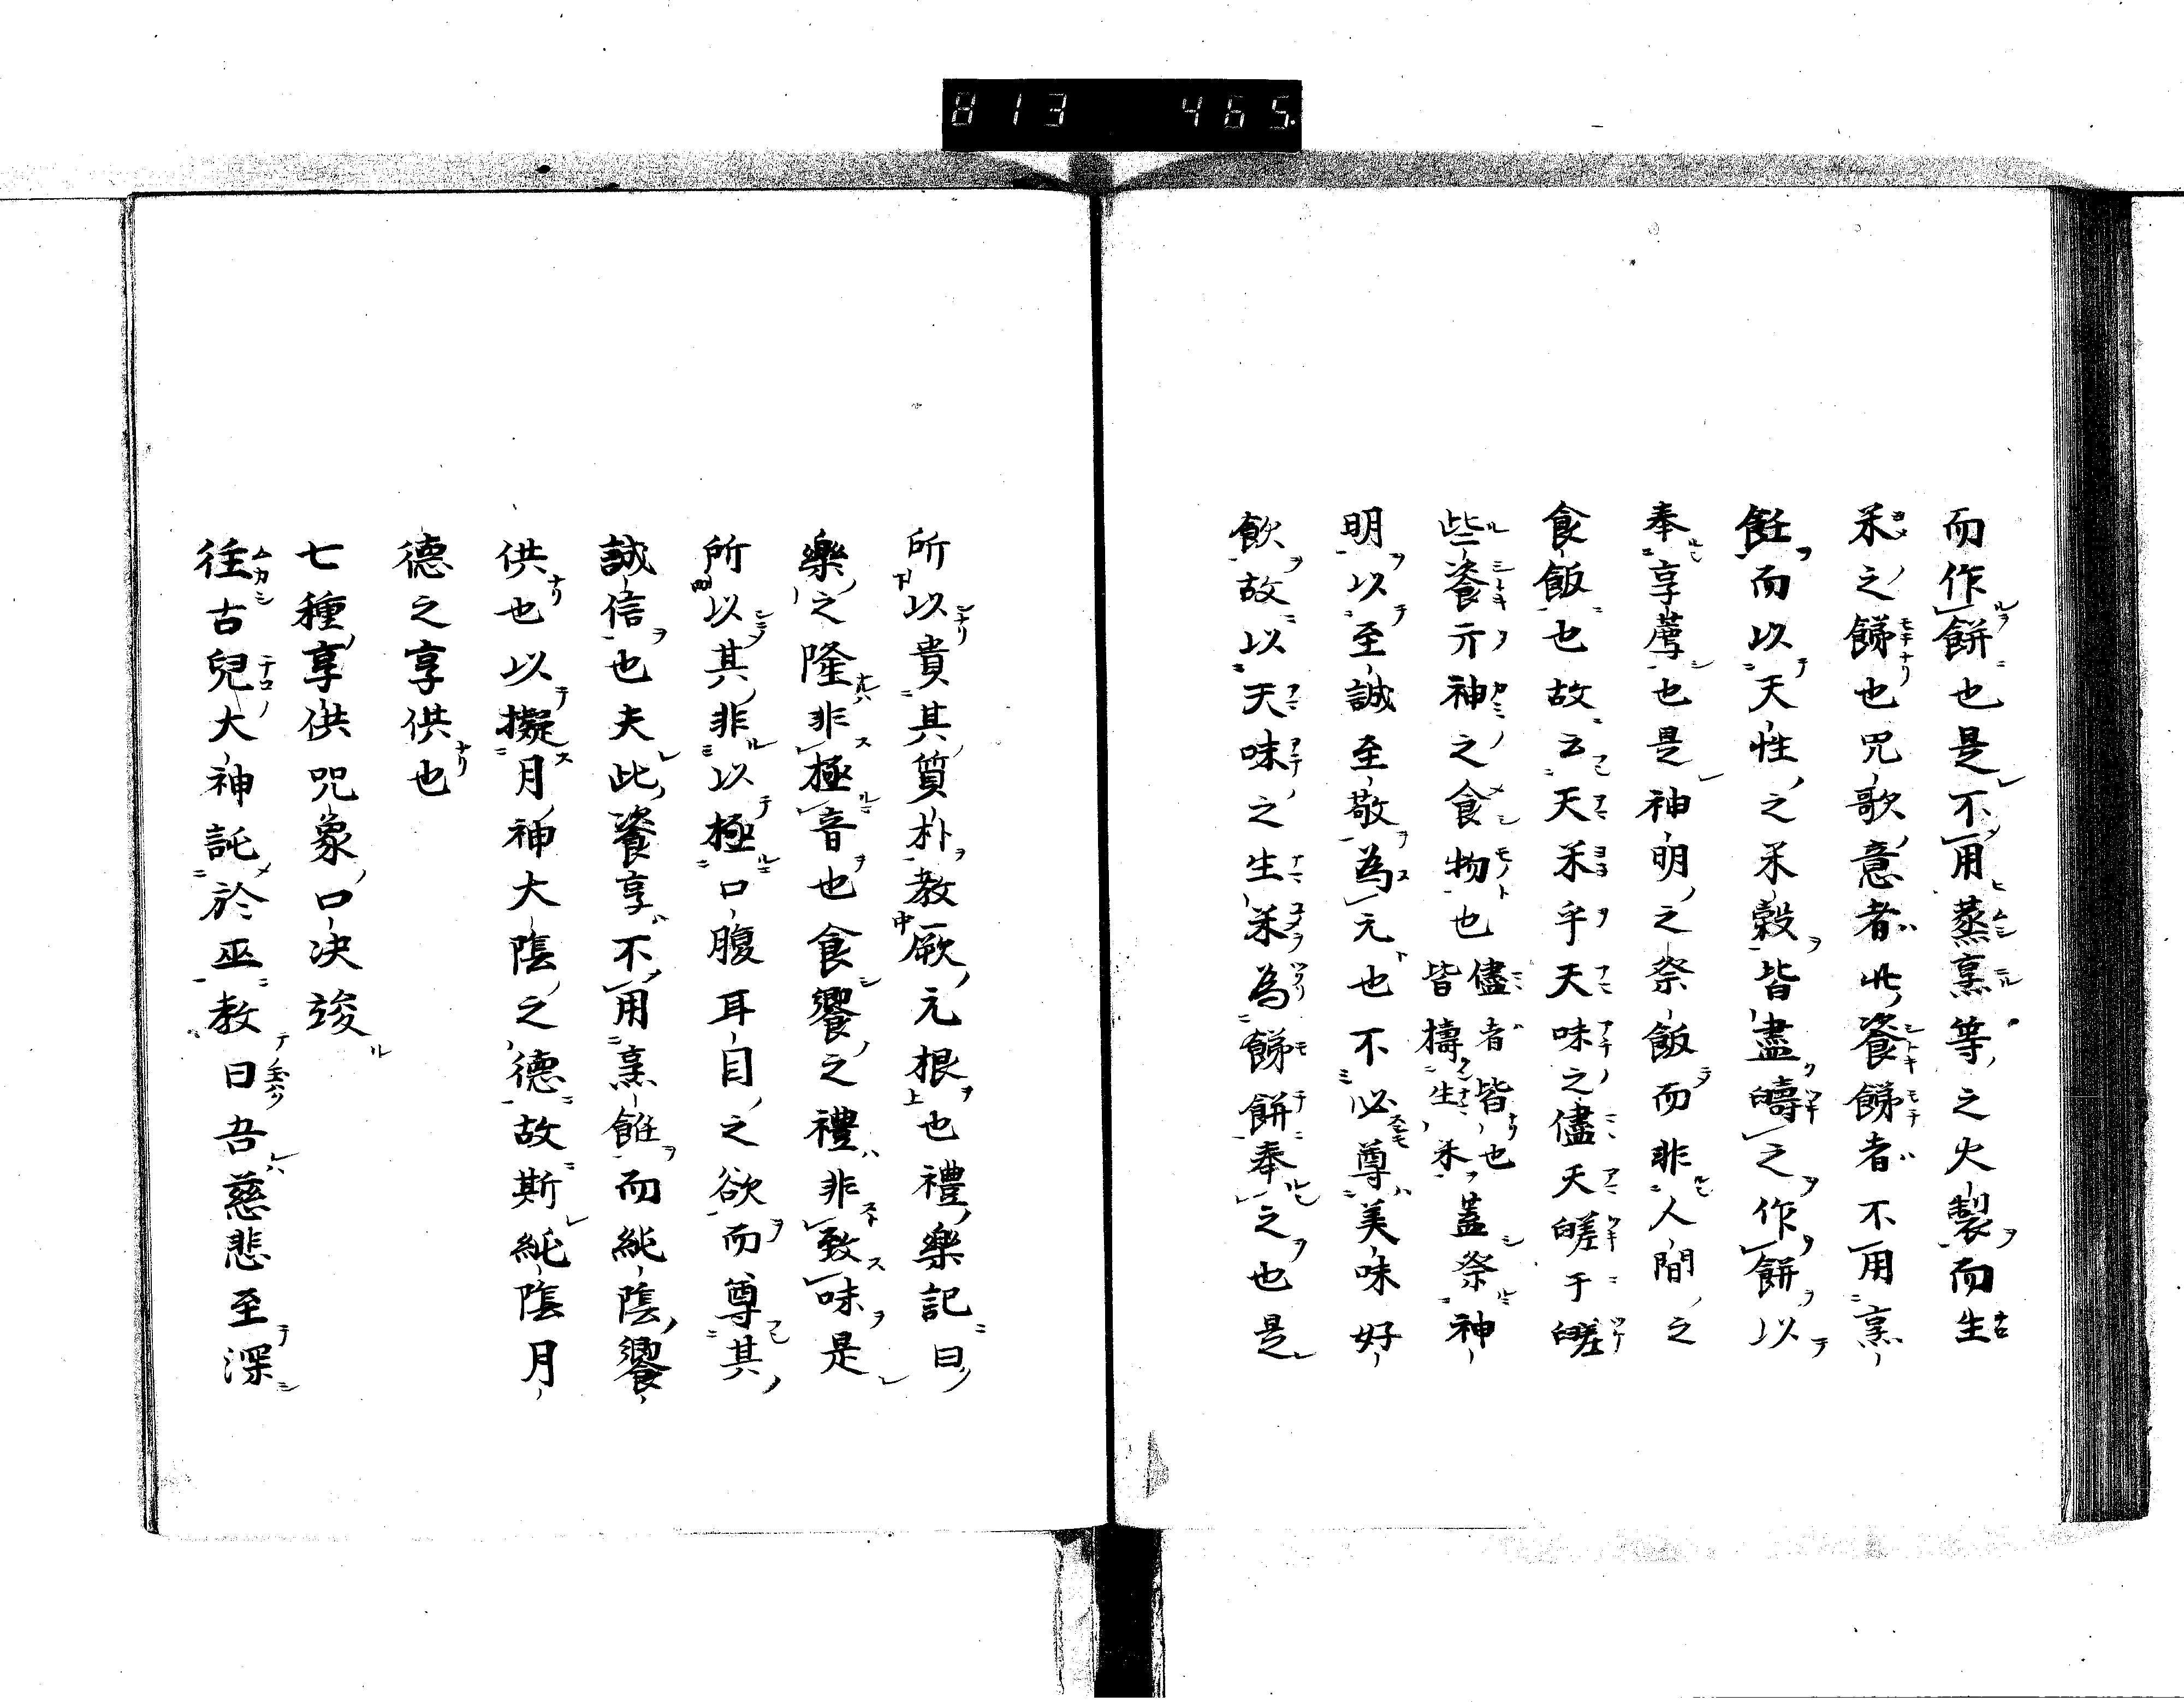 813 465.
而作餅也是不用蒸烹等之火製而生
米之餙也咒歌意者此餈餙者不用烹
飪而以天性之米穀皆盡擣之作餅以
奉享薦也是神明之祭飯而非人間之
食飯也故云天米乎天味之儘天㿷于㿷
些餈亓神之食物也儘者皆也皆擣生米蓋祭神
明以至誠至敬為元也不必尊美味好
飲故以天味之生米為餙餅奉之也是
所以貴其質朴教厥元根也禮樂記曰
樂之隆非極音也食饗之禮非致味是
所以其非以極口腹耳目之欲而尊其
誠信也夫此餈享不用烹餁而純陰饗
供也以擬月神大陰之德故斯純陰月
德之享供也
七種享供咒象口决竣
往古兒大神託於巫教曰吾慈悲至深